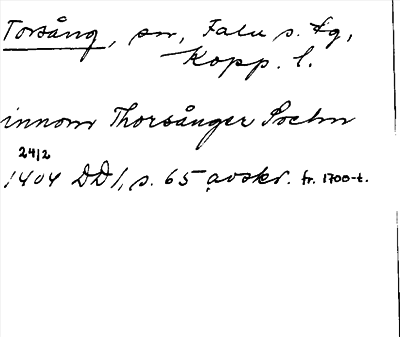 Torsång, sn, Falu s. tg,
Kopp. l.
innom Thorsånger Sochn
24/2
1404 DD 1, s. 65 avskr. fr. 1700-t.